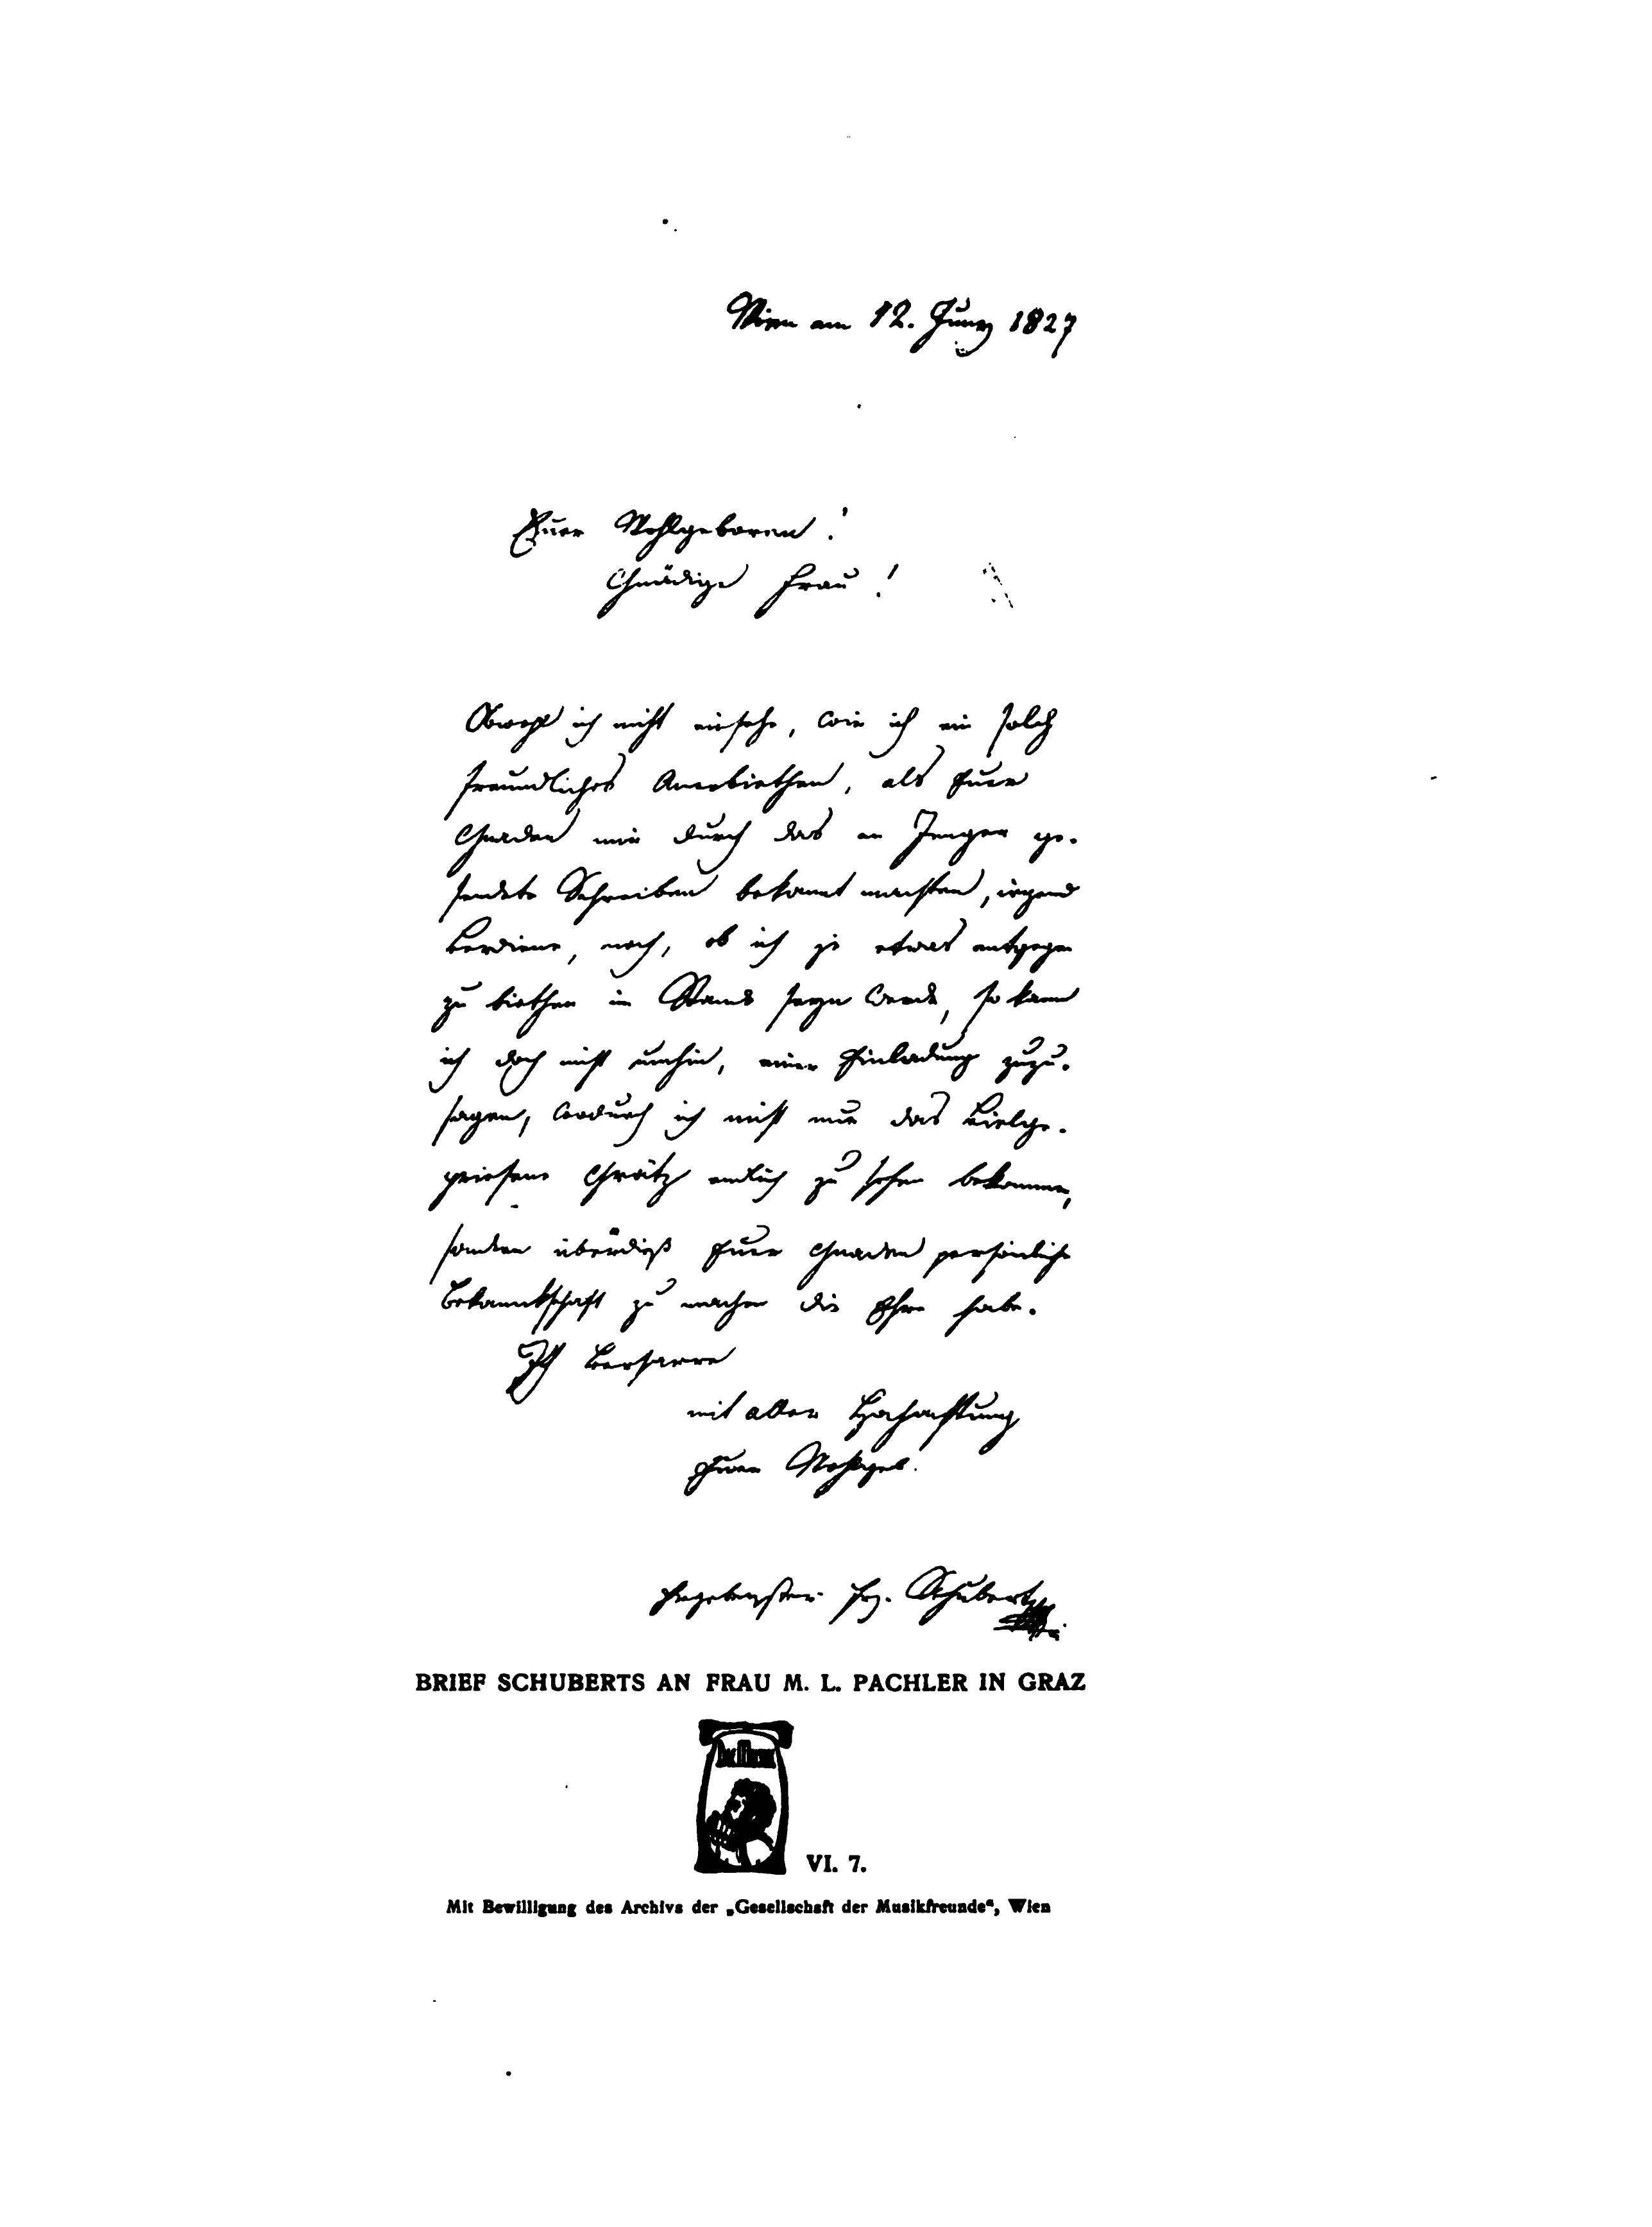 Wien am 12. Juny 1827
Euer Wohlgeboren!
Gnädige Frau!
Obwohl ich nicht einsehe, wie ich ein solch
freundliches Anerbiethen, als Euer
Gnaden mir durch das an Jenger ge-
sendete Schreiben bekannt machten, irgend
verdiene, noch, ob ich je etwas entgegen
zu biethen im Stande seyn werde, so kann
ich doch nicht umhin, einer Einladung zuzu-
sagen, wodurch ich nicht nur das vielge-
priesene Grätz endlich zu sehen bekomme,
sondern überdieß Euer Gnaden persönliche
Bekanntschaft zu machen die Ehre habe.
Ich verharre
mit aller Hochachtung
Euer Wohlgeb.
Ergebenster Frz. Schubert
BRIEF SCHUBERTS AN FRAU M. L. PACHLER IN GRAZ
Die Musik
VI. 7.
Mit Bewilligung des Archivs der „Gesellschaft der Musikfreunde“, Wien